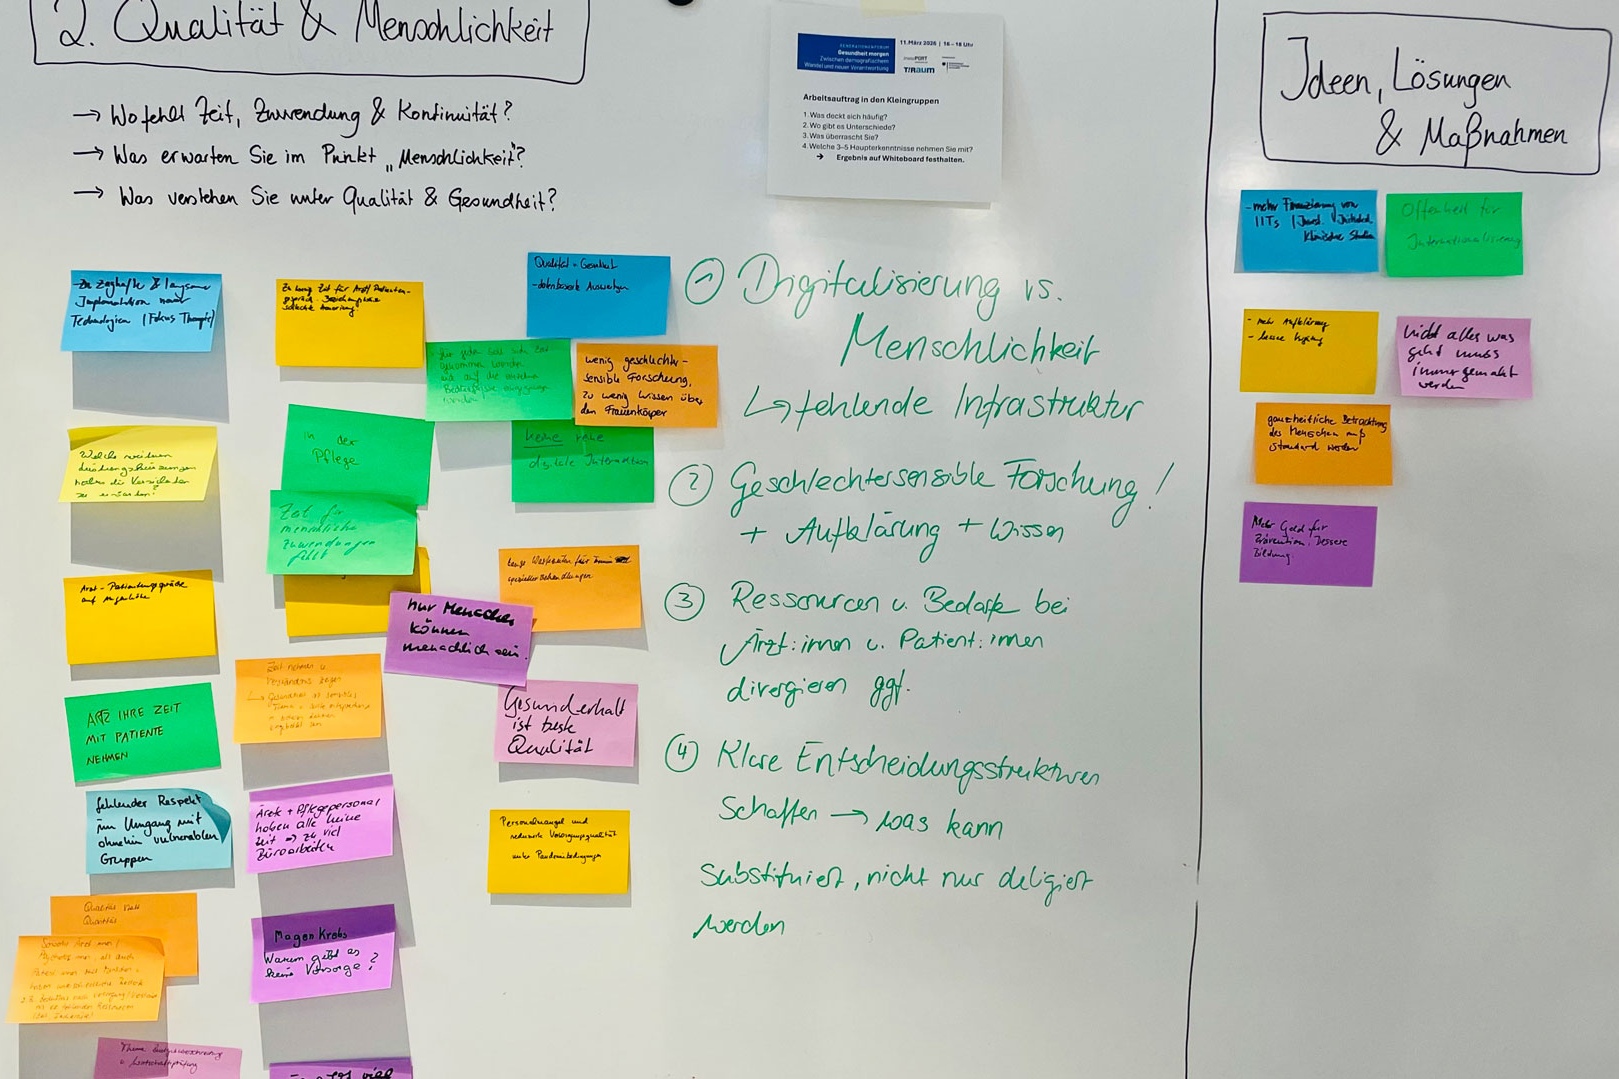 2. Qualität & Menschlichkeit
→ Wo fehlt Zeit, Zuwendung & Kontinuität?
→ Was erwarten Sie im Punkt „Menschlichkeit"?
→ Was verstehen Sie unter Qualität & Gesundheit?
GENERATIONENFORUM
Gesundheit morgen
Zwischen demografischem
Wandel und neuer Verantwortung
11. März 2026 | 16 – 18 Uhr
T!Raum
Arbeitsauftrag in den Kleingruppen
1. Was deckt sich häufig?
2. Wo gibt es Unterschiede?
3. Was überrascht Sie?
4. Welche 3–5 Haupterkenntnisse nehmen Sie mit?
→ Ergebnis auf Whiteboard festhalten.
- Zu zaghafte & langsame
Implementation neuer
Technologien (Fokus Therapie)
Welche weiteren
haben die Versicherten
zu erwarten?
Arzt - Patientengespräche
auf Augenhöhe
ARZ IHRE ZEIT
MIT PATIENTE
NEHMEN
fehlender Respekt
im Umgang mit
ohnehin vulnerablen
Gruppen
Qualität statt
Quantität
Zu wenig Zeit für Arzt/Patienten-
gespräch
in der
Pflege
Zeit für
menschliche
Zuwendungen
fehlt
Zeit nehmen u.
Verständnis zeigen
Ärzte + Pflegepersonal
haben alle keine
Zeit => zu viel
Büroarbeiten
Magen Krebs
Warum gibt es
keine Vorsorge?
viel
Qualität + Gesundheit
- datenbasierte
für jeden soll sich Zeit
genommen werden
und auf die einzelnen
Bedürfnisse eingegangen
werden
wenig geschlechter-
sensible Forschung,
zu wenig Wissen über
den Frauenkörper
keine reine
digitale Interaktion
Lange Wartezeiten für
spezielle Behandlungen
nur Menschen
können
menschlich sein.
Gesunderhalt
ist beste
Qualität
Personalmangel und
reduzierte Versorgungsqualität
unter Pandemiebedingungen
① Digitalisierung vs.
Menschlichkeit
↳ fehlende Infrastruktur
② Geschlechtersensible Forschung!
+ Aufklärung + Wissen
③ Ressourcen u. Bedarfe bei
Ärzt:innen u. Patient:innen
divergieren ggf.
④ Klare Entscheidungsstrukturen
schaffen → was kann
substituiert, nicht nur deligiert
werden
Ideen, Lösungen
& Maßnahmen
- mehr Finanzierung von
IITs (Invest. Initiated
Klinischer Studien
Offenheit für
Internationalisierung
- mehr Aufklärung
nicht alles was
geht muss
immer gemacht
werden
ganzheitliche Betrachtung
des Menschen muß
standard werden
Mehr Geld für
Prävention, bessere
Bildung.